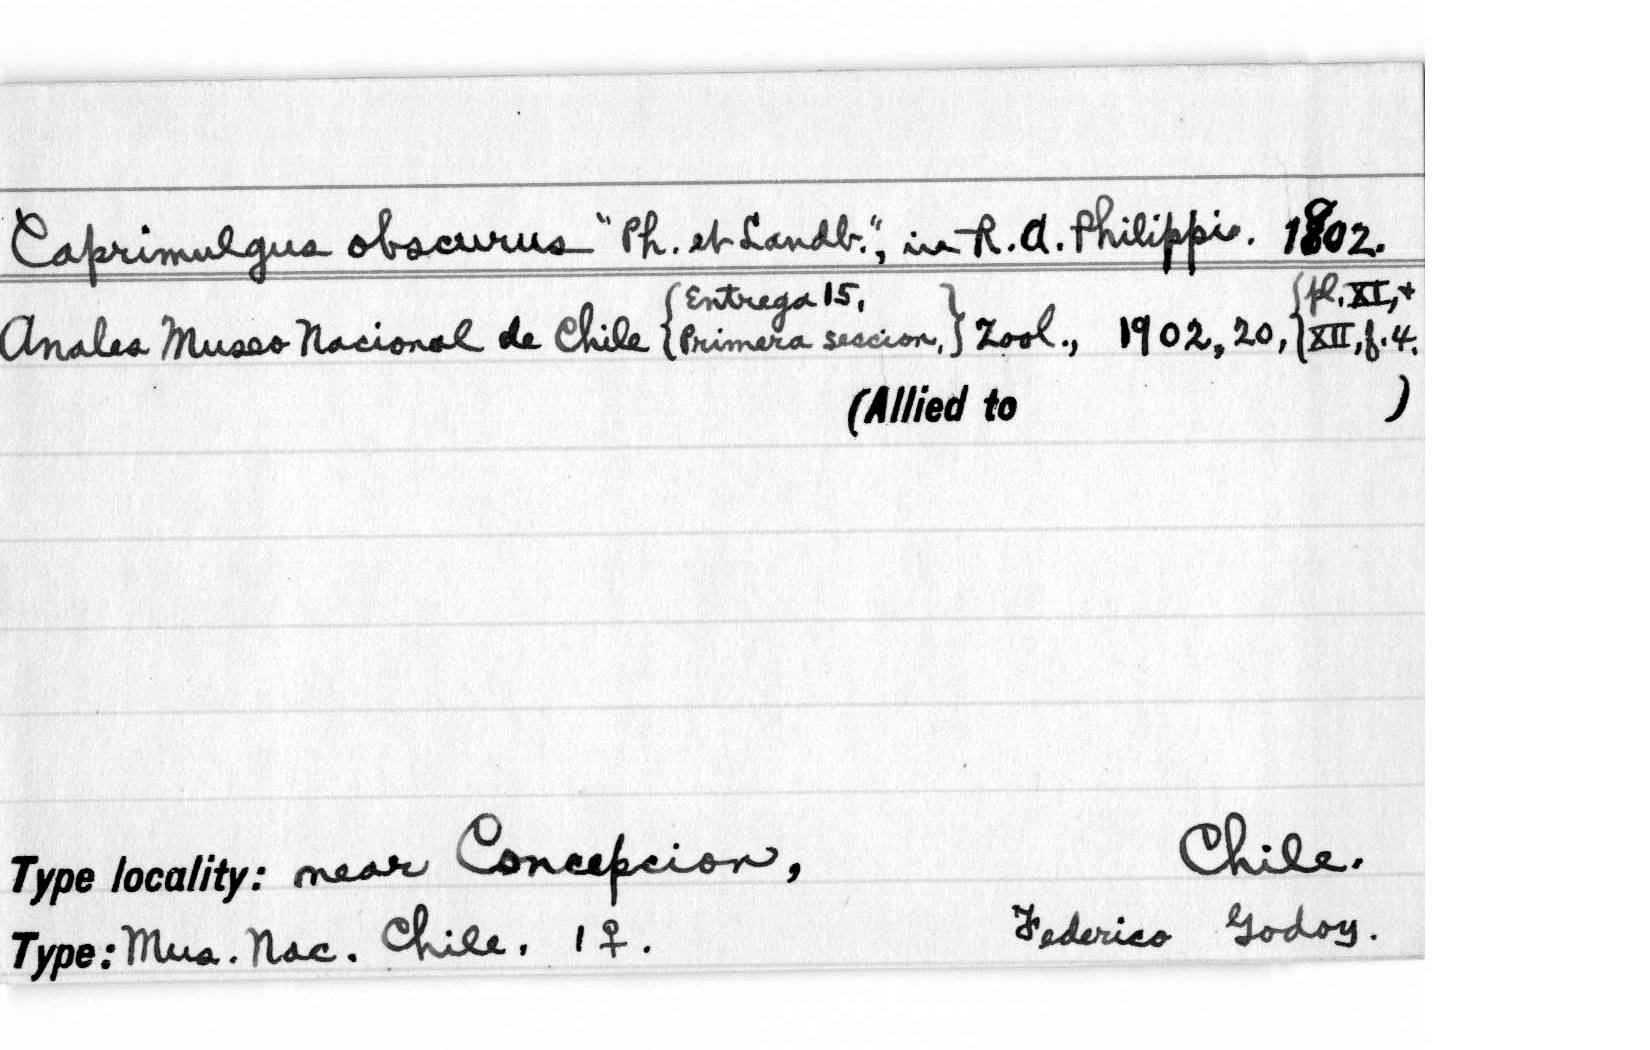 Caprimulgus obscurus "Ph. et Landb.", in R. A. Philippi. 1802.
Anales Museo Nacional de Chile {Entrega 15, Primera seccion,} Zool., 1902, 20, {pl. XI, + XII, f. 4.
(Allied to )
Type locality: near Concepcion, Chile.
Type: Mus. Nac. Chile. 1 ♀. Federico Godoy.